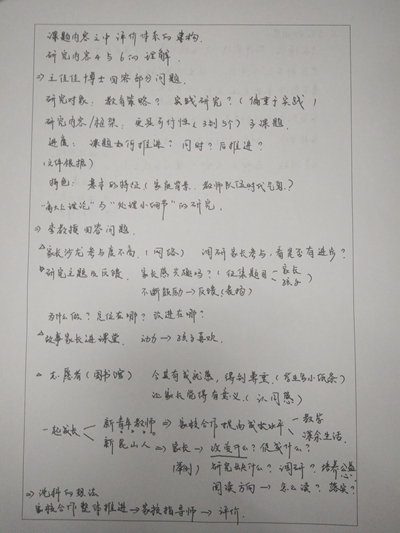 课题内容之中评价体系的建构.
研究内容4与6的理解.
王佳佳博士回答部分问题.
研究对象: 教育策略? 实践研究? (偏重于实践)
研究内容/框架: 更具可行性(3到5个)子课题.
进度: 课题如何推进? 同时? 后推进?
(文件依据)
特色: 基本的特征(家庭背景. 教师队伍时代气息?)
"高大上理论"与"处理小细节"的研究.
李教授回答问题.
家长沙龙参与度不高. (网络) 调研家长参与, 看是否有进步?
研究主题及反馈. 家长感兴趣吗? (征集题目 家长
孩子)
不断鼓励→反馈(表扬)
为什么做? 定位在哪? 改进在哪?
故事家长进课堂. 动力→孩子喜欢.
志愿者(图书馆) 令其有成就感, 得到尊重. (学生写小纸条)
让家长觉得有意义. (认同感)
一起成长 新青年教师 ⇒ 家校合作提高成效水平 教学
课余生活.
新昆山人 ⇒ 家长→改变什么? 促成什么?
(案例) 研究缺什么? 调研? 培养公益
阅读方向→怎么读? 落实?
沈科的想法
家校合作整体推进→家校指导师→评价.